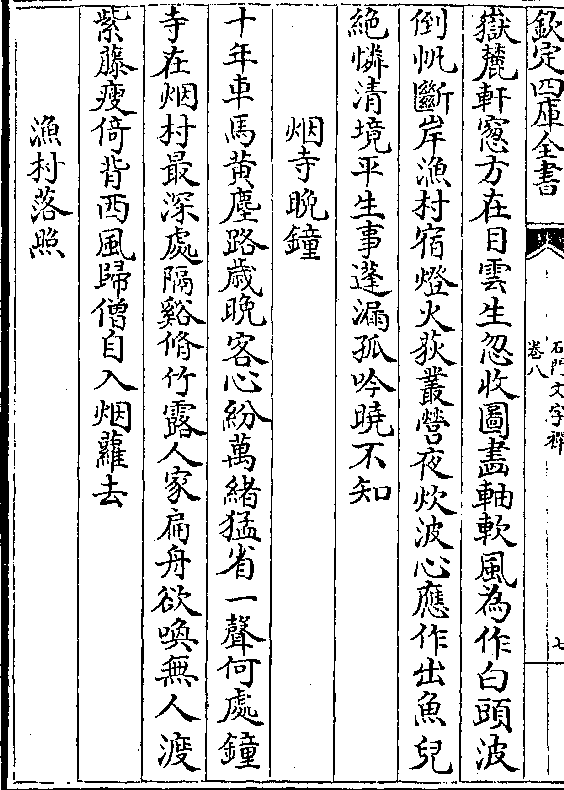 欽定四庫全書
石門文字禪
卷八
七
嶽麓軒窓方在目雲生忽收圖畵軸軟風為作白頭波
倒帆斷岸漁村宿燈火荻叢營夜炊波心應作出魚兒
絶憐清境平生事蓬漏孤吟曉不知
烟寺晚鐘
十年車馬黄塵路歳晚客心紛萬緒猛省一聲何處鐘
寺在烟村最深處隔谿脩竹露人家扁舟欲喚無人渡
紫藤瘦倚背西風歸僧自入烟蘿去
漁村落照